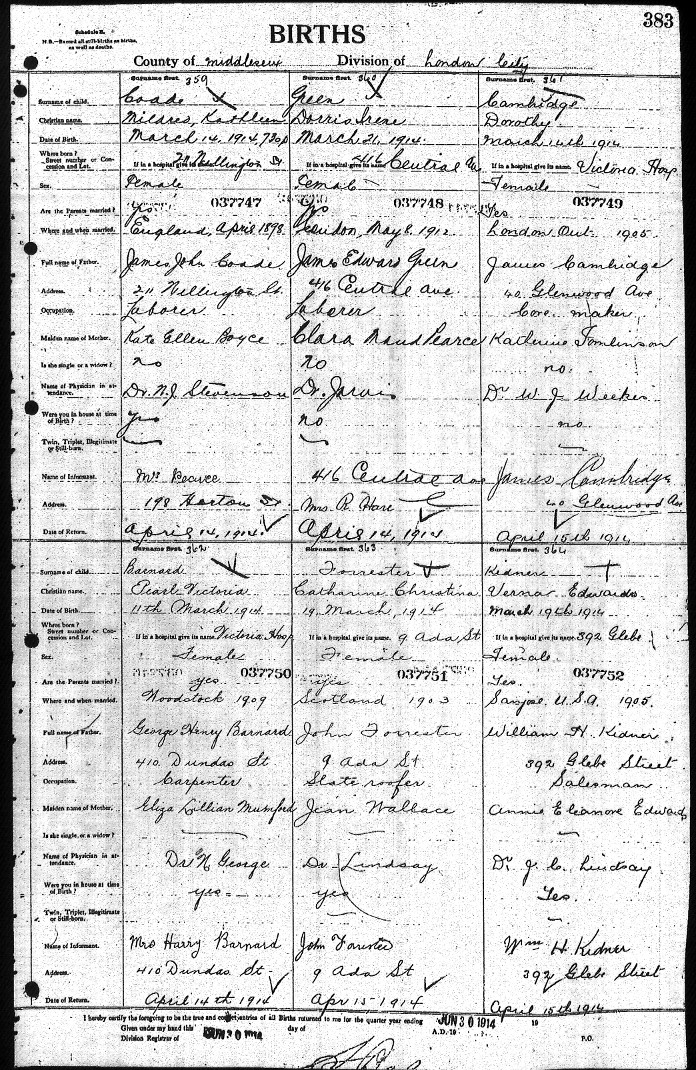 383
Schedule B.
N.B.—Record all still-births as births, as well as deaths.
BIRTHS
County of Middlesex Division of London City
Surname first. 359 Surname first. 360 Surname first. 361
Surname of child. Coade Green Cambridge
Christian name. Mildred, Kathleen Dorris Irene Dorothy
Date of Birth. March 14, 1914, 730p March 21, 1914. March 14th 1914
Where born?
Street number or Concession and Lot. If in a hospital give its name. 211 Wellington St If in a hospital give its name. 416 Central Av If in a hospital give its name. Victoria Hosp
Sex. Female Female Female
037747 037748 037749
Are the Parents married? yes Yes
Where and when married. England, April 1898 London, May 8, 1912 London Ont. 1905
Full name of Father. James John Coade James Edward Green James Cambridge
Address. 211 Wellington St. 416 Central ave 40 Glenwood Ave
Occupation. Laborer Laborer Core maker
Maiden name of Mother. Kate Ellen Boyce Clara Maud Pearce Katherine Tomlinson
Is she single or a widow? no no no.
Name of Physician in attendance. Dr. N.J. Stevenson Dr. Jarvis Dr W J Weekes
Were you in house at time of Birth? yes no no
Twin, Triplet, Illegitimate or Still-born.
Name of Informant. Mrs Pearce 416 Central ave James Cambridge
Address. 198 Horton St Mrs. R. Hare 40 Glenwood Ave
Date of Return. April 14, 1914. April 14, 1914 April 15th 1914
Surname first. 362 Surname first. 363 Surname first. 364
Surname of child. Barnard Forrester Kidner
Christian name. Pearl Victoria Catharine Christina Verna Edwards
Date of Birth. 11th March 1914 19 March, 1914 March 19th 1914
Where born?
Street number or Concession and Lot. If in a hospital give its name. Victoria Hosp If in a hospital give its name. 9 Ada St If in a hospital give its name. 392 Glebe
Sex. Female Female Female
037750 037751 037752
Are the Parents married? yes yes Yes.
Where and when married. Woodstock 1909 Scotland 1903 Sanjose U.S.A. 1905.
Full name of Father. George Henry Barnard John Forrester William H. Kidner
Address. 410 Dundas St 9 Ada St. 392 Glebe Street
Occupation. Carpenter Slate roofer Salesman
Maiden name of Mother. Eliza Lillian Mumford Jean Wallace Annie Eleanore Edwards
Is she single, or a widow?
Name of Physician in attendance. Dr N George Dr Lindsay Dr J. C. Lindsay
Were you in house at time of Birth? yes yes Yes.
Twin, Triplet, Illegitimate or Still-born.
Name of Informant. Mrs Harry Barnard John Forrester Wm H Kidner
Address. 410 Dundas St. 9 Ada St 392 Glebe Street
Date of Return. April 14th 1914 Apr 15 1914 April 15th 1914
I hereby certify the foregoing to be the true and correct entries of all Births returned to me for the quarter year ending JUN 30 1914 19
Given under my hand this JUN 30 1914 day of A.D. 19
Division Registrar of P.O.